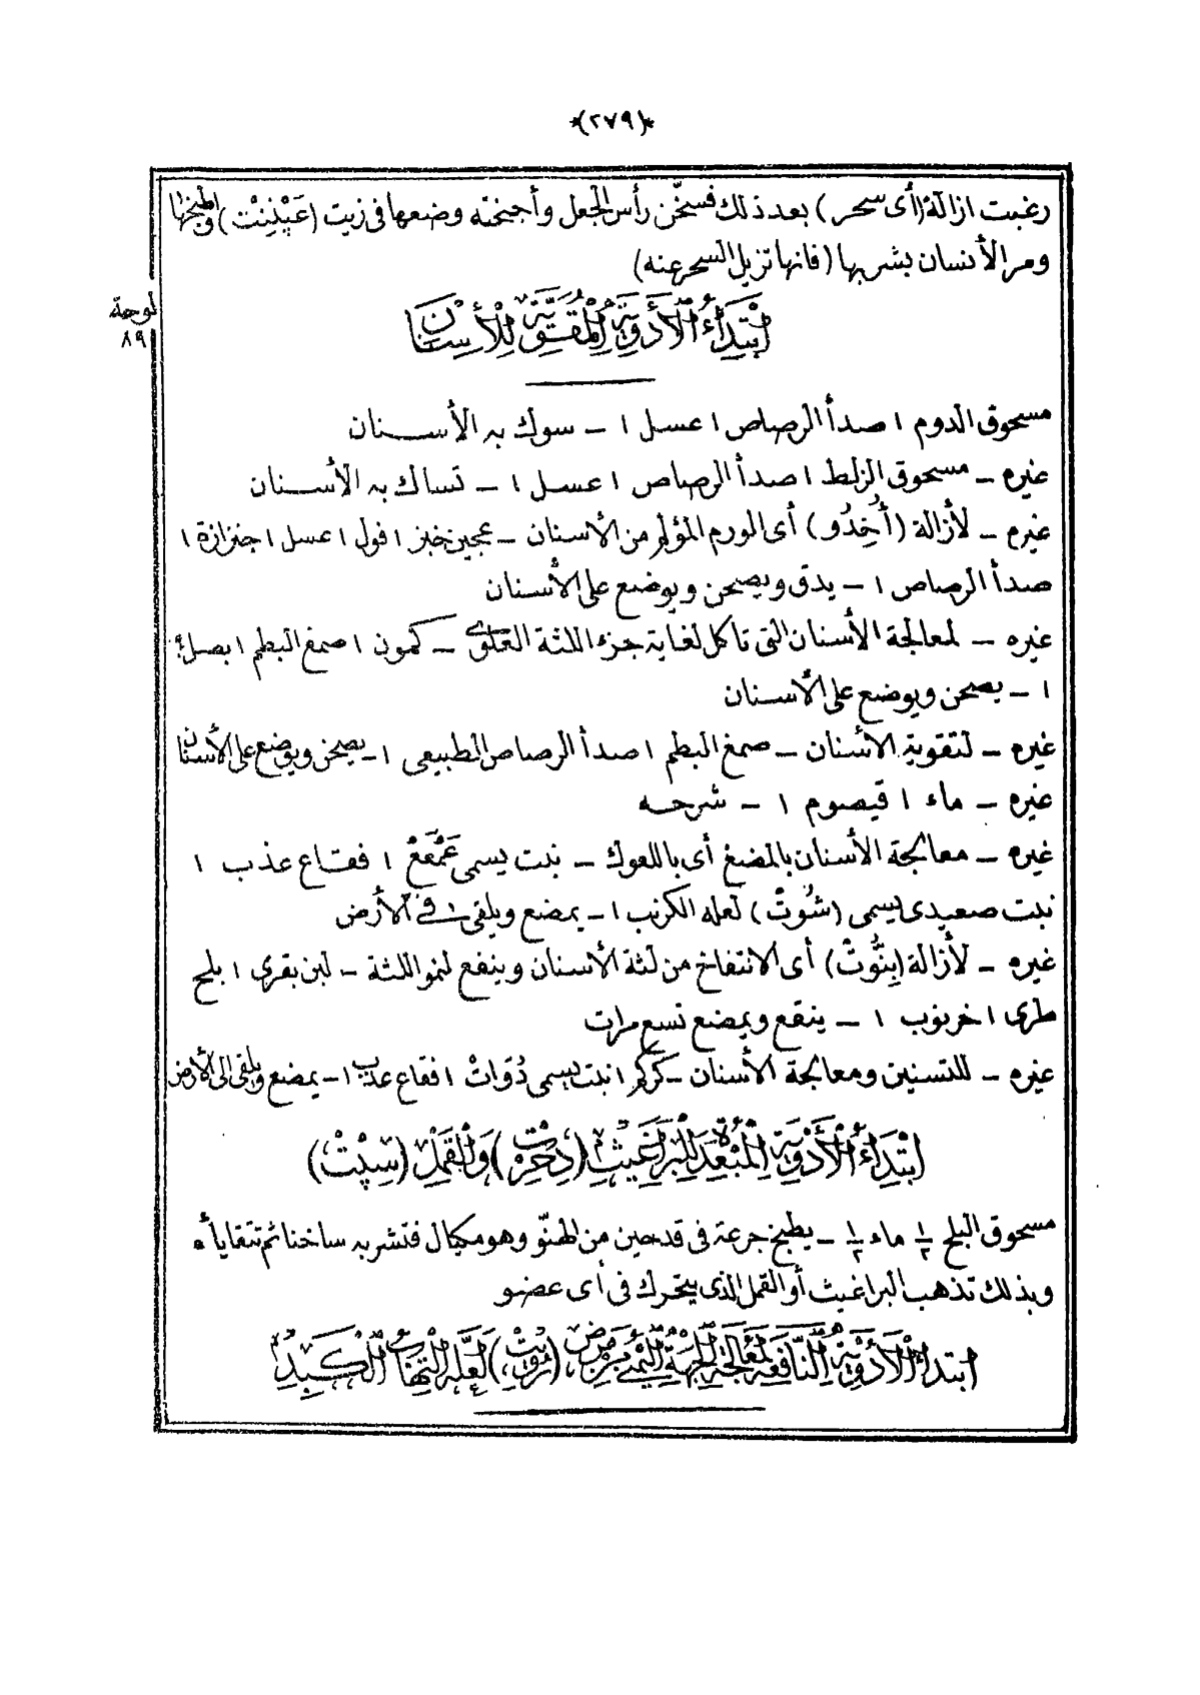 *(٢٧٩)*
رغبت ازالة (أى سحر) بعد ذلك فسخّن رأس الجعل وأجنحته وضعها فى زيت (عَبْنِنِتْ) واطبخها
ومر الأنسان بشربها (فانها تزيل السحر عنه)
لوحة
٨٩
إبْتِدَاءُ الْأَدْوِيَةِ الْمُقَوِّيَةِ لِلْأَسْنَانِ
مسحوق الدوم ١ صدأ الرصاص ١ عسل ١ – سوك به الأسنان
غيره – مسحوق الزلط ١ صدأ الرصاص ١ عسل ١ – تساك به الأسنان
غيره – لأزالة (أُخِدُو) أى الورم المؤلم من الأسنان – عجين خبز ١ فول ١ عسل ١ جنزازة ١
صدأ الرصاص ١ – يدق ويصحن ويوضع على الأسنان
غيره – لمعالجة الأسنان التى تاكل لغاية جزء اللثة العلوى – كمون ١ صمغ البطم ١ بصل؟
١ – يصحن ويوضع على الأسنان
غيره – لتقوية الاسنان – صمغ البطم ١ صدأ الرصاص الطبيعى ١ – يصحن ويوضع على الأسنان
غيره – ماء ١ قيصوم ١ – شرحه
غيره – معالجة الأسنان بالمضغ أى باللعوك – نبت يسمى عَمْعَعْ ١ فقاع عذب ١
نبت صعيدى يسمى (شُوتْ) لعله الكرنب ١ – يمضغ ويلقى فى الأرض
غيره – لأزالة (بِنُّوتْ) أى الانتفاخ من لثة الأسنان وينفع لنمو اللثة – لبن بقرى ١ بلح
طرى ١ خرنوب ١ – ينقع ويمضغ تسع مرات
غيره – للتسنين ومعالجة الأسنان – كركر ١ نبت يسمى دُوَاتْ ١ فقاع عذب ١ – يمضغ ويلقى الى الأرض
إبْتِدَاءُ الْأَدْوِيَةِ الْمُبْعِدَةِ لِلْبَرَاغِيثِ (دِحِرْتْ) وَالْقَمْلِ (سِپْتْ)
مسحوق البلح ١/٢ ماء ١/٢ – يطبخ جرعة فى قدحين من الهنّو وهو مكيال فتشربه ساخنا ثم تتقاياه
وبذلك تذهب البراغيث أو القمل الذى يتحرك فى أى عضو
ابتداءُ الْأَدْوِيَةِ النَّافِعَةِ لِمُعَالَجَةِ الْجِهَةِ الْيُمْنَى مِنْ مَرَض (مُرْتِتْ) لَعَلَّهُ الْتِهَابُ الْكَبِدِ